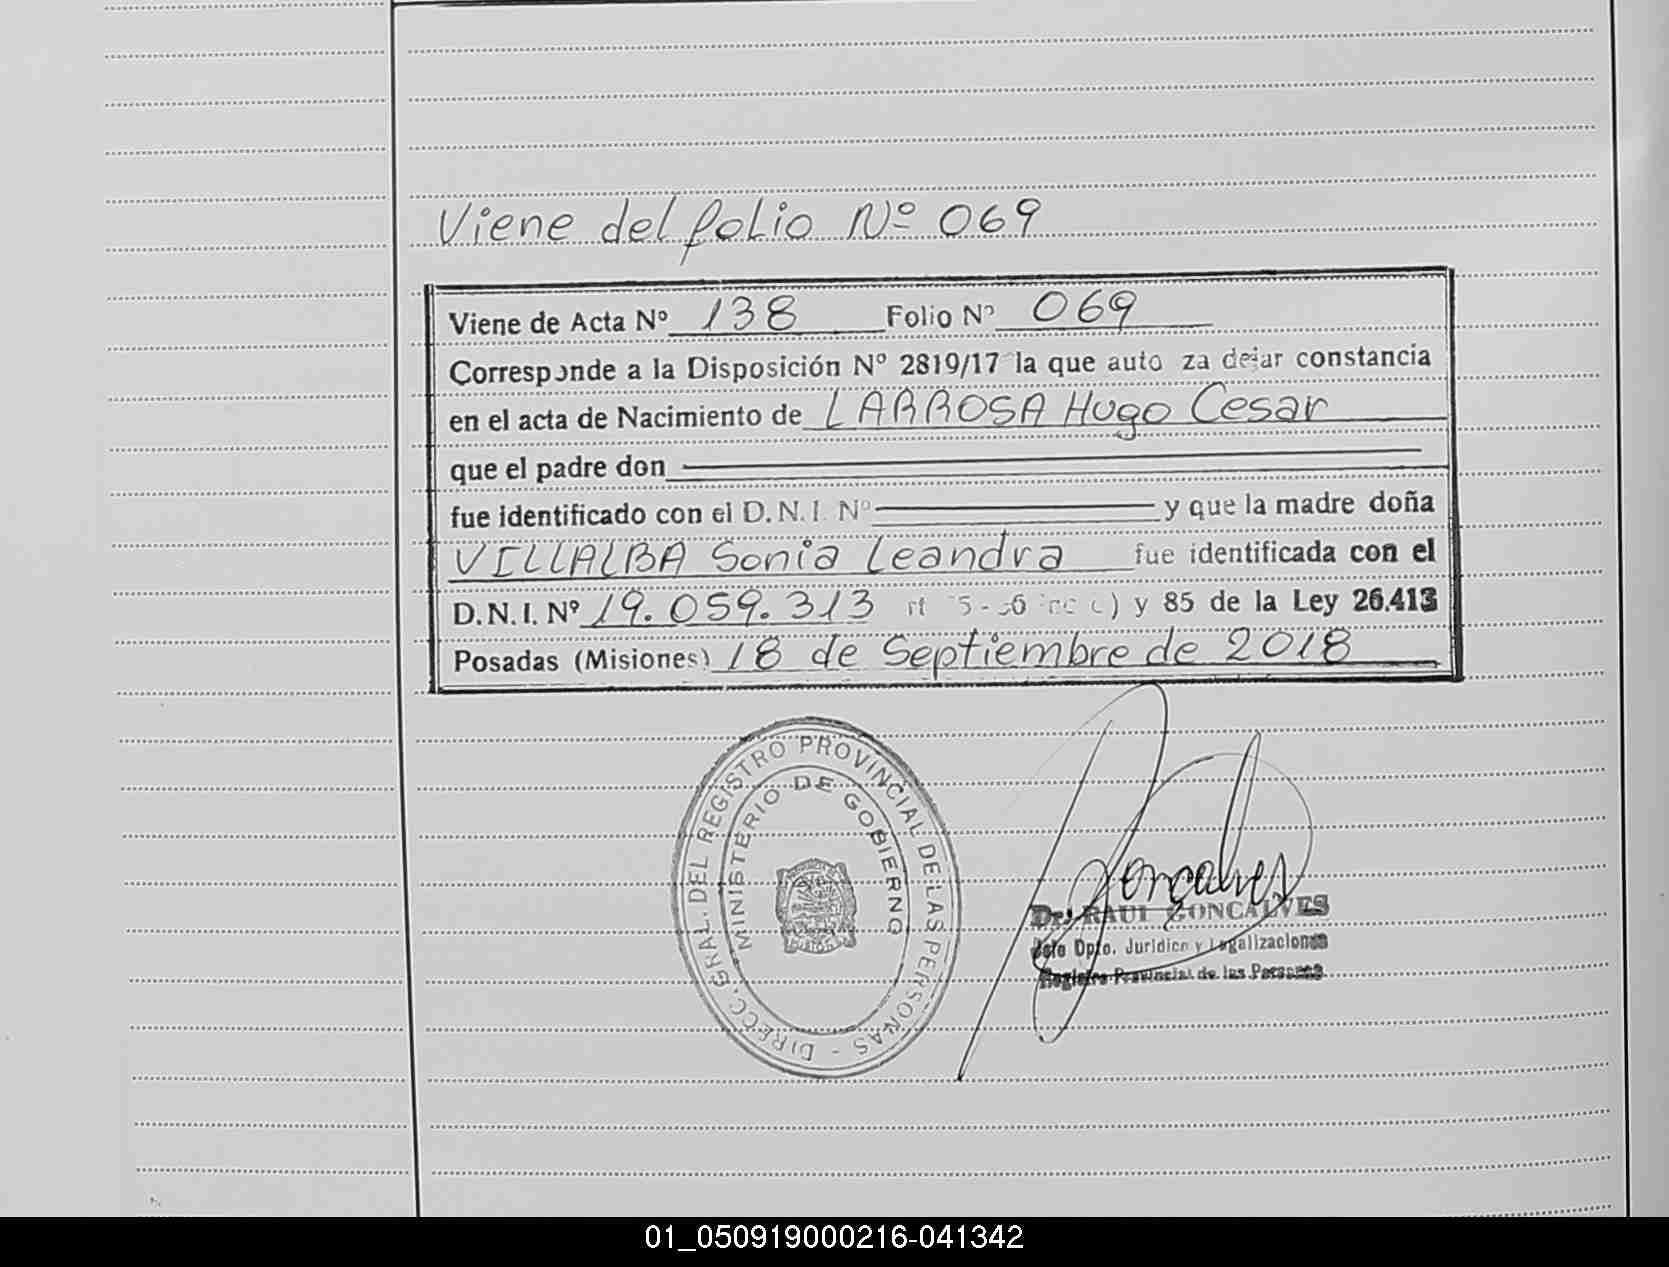 Viene del folio Nº 069
Viene de Acta Nº 138 Folio Nº 069
Corresponde a la Disposición Nº 2819/17 la que auto za dejar constancia
en el acta de Nacimiento de LARROSA Hugo Cesar
que el padre don
fue identificado con el D.N.I. Nº y que la madre doña
VILLALBA Sonia Leandra fue identificada con el
D.N.I. Nº 19.059.313 y 85 de la Ley 26.413
Posadas (Misiones) 18 de Septiembre de 2018
DIRECC. GRAL. DEL REGISTRO PROVINCIAL DE LAS PERSONAS -
MINISTERIO DE GOBIERNO
Goncalves
Dr. RAUL GONCALVES
Jefe Dpto. Jurídico y Legalizaciones
Registro Provincial de las Personas
01_050919000216-041342